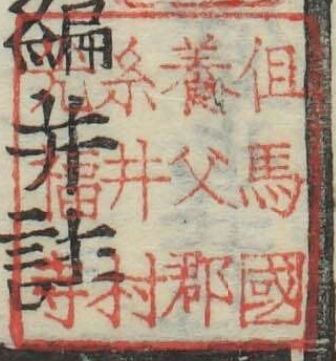 但馬國
養父郡
糸井村
光福寺
編并註